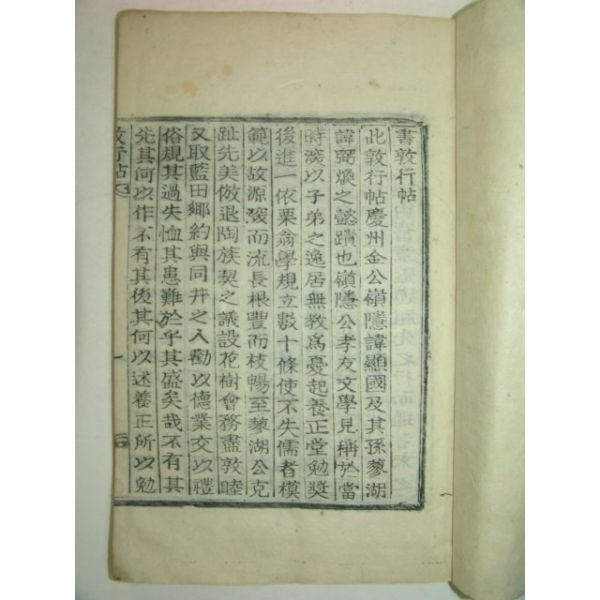 書敦行帖
此敦行帖慶州金公嶺隱諱顯國及其孫蓼湖
諱弼煥之懿蹟也嶺隱公孝友文學見稱於當
時深以子弟之逸居無敎爲憂起養正堂勉奬
後進一依栗翁學規立數十條使不失儒者模
範以故源深而流長根豐而枝暢至蓼湖公克
趾先美倣退陶族契之議設花樹會務盡敦睦
又取藍田鄕約與同井之人勸以德業交以禮
俗規其過失恤其患難於乎其盛矣哉不有其
先其何以作不有其後其何以述養正所以勉
敦行帖
二